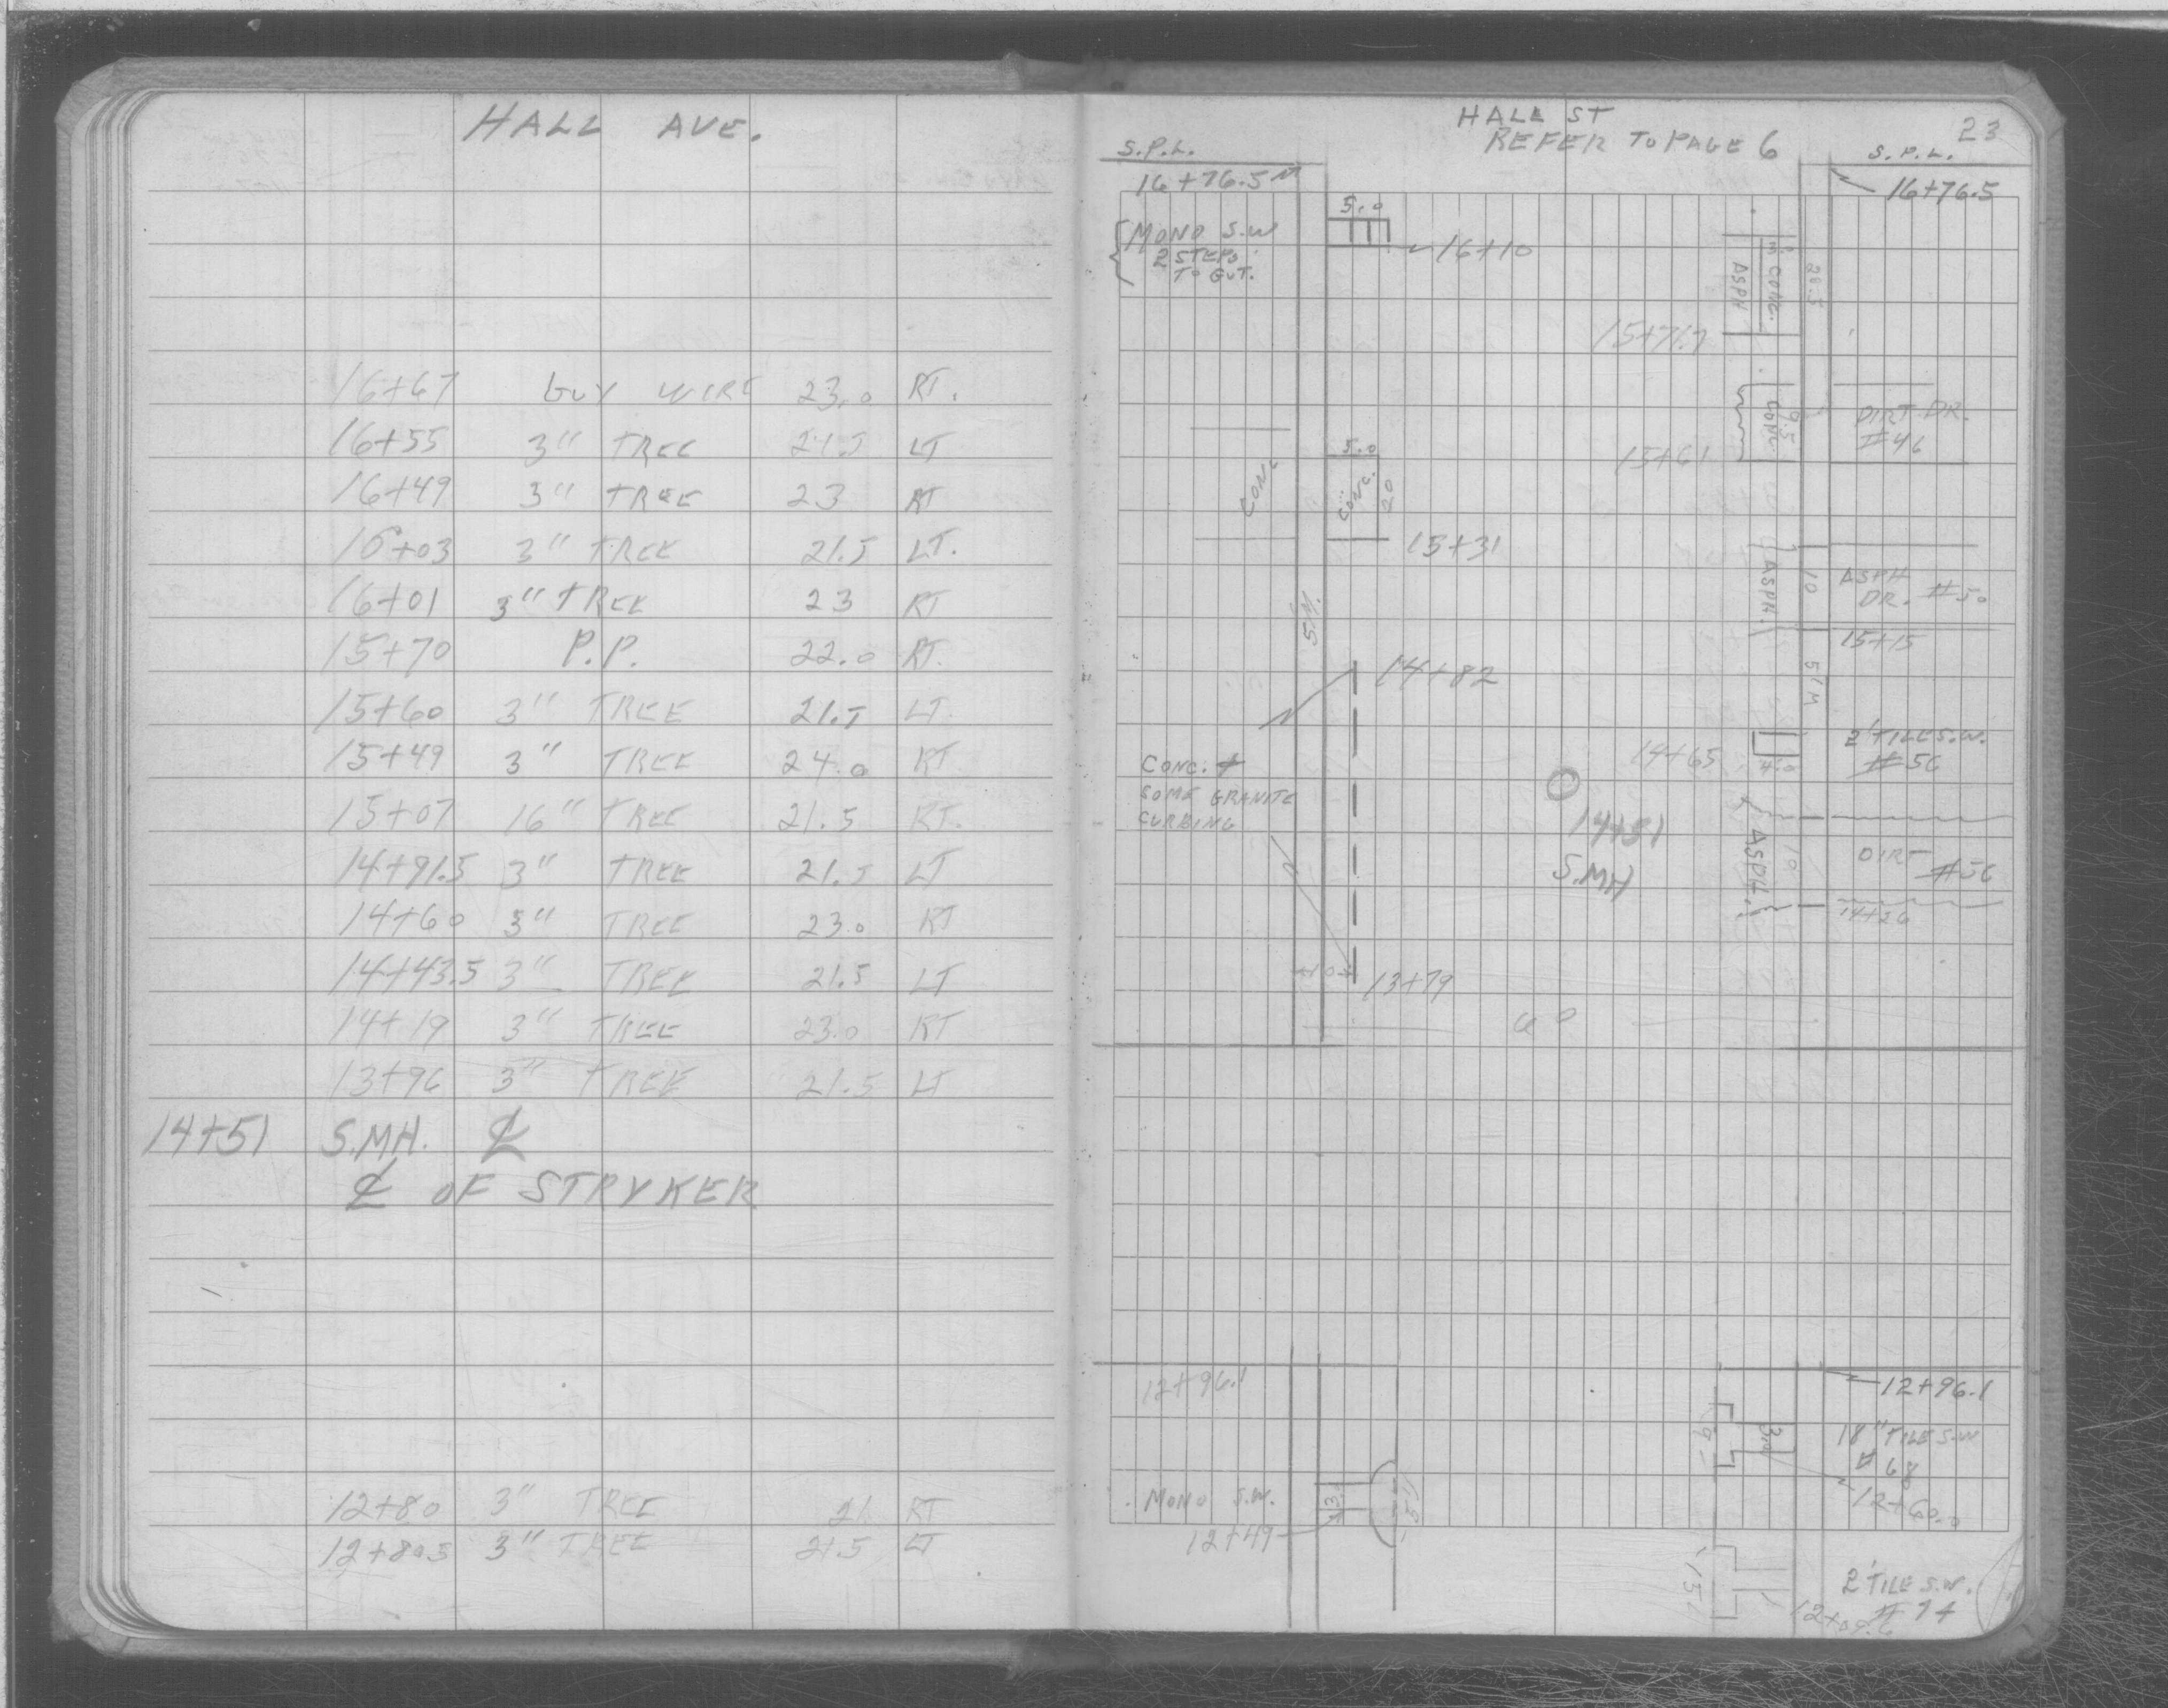 HALL AVE.
16+67 GUY WIRE 23.0 RT.
16+55 3" TREE 21.5 LT
16+49 3" TREE 23 RT
16+03 3" TREE 21.5 LT.
16+01 3" TREE 23 RT
15+70 P.P. 22.0 RT.
15+60 3" TREE 21.5 LT.
15+49 3" TREE 24.0 RT
15+07 16" TREE 21.5 RT.
14+91.5 3" TREE 21.5 LT
14+60 3" TREE 23.0 RT
14+43.5 3" TREE 21.5 LT
14+19 3" TREE 23.0 RT
13+96 3" TREE 21.5 LT
14+51 S.MH. ℄
℄ OF STRYKER
12+80 3" TREE 21 RT
12+80.5 3" TREE 21.5 LT
HALL ST
REFER TO PAGE 6
23
S.P.L.
16+76.5
S.P.L.
16+76.5
MONO S.W
2 STEPS
TO GUT.
5.0
16+10
CONC.
ASPH
28.5
15+71.7
CONC.
9.5
DIRT DR.
#46
15+61
CONC
5.0
CONC.
20
15+31
ASPH.
10
ASPH
DR. #50
15+15
S/W
S/W
14+82
CONC. +
SOME GRANITE
CURBING
14+65
4.0
2' TILE S.W.
#56
14+51
S.MH
ASPH.
10
DIRT
#56
14+26
13+79
12+96.1
12+96.1
18" TILE S.W
# 68
12+60.0
MONO S.W.
12+49
2' TILE S.W.
# 74
12+09.6